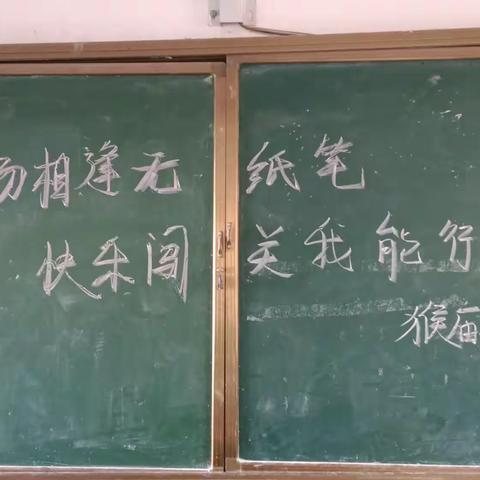 场相逢无纸笔
快乐闯关我能行
猴庙